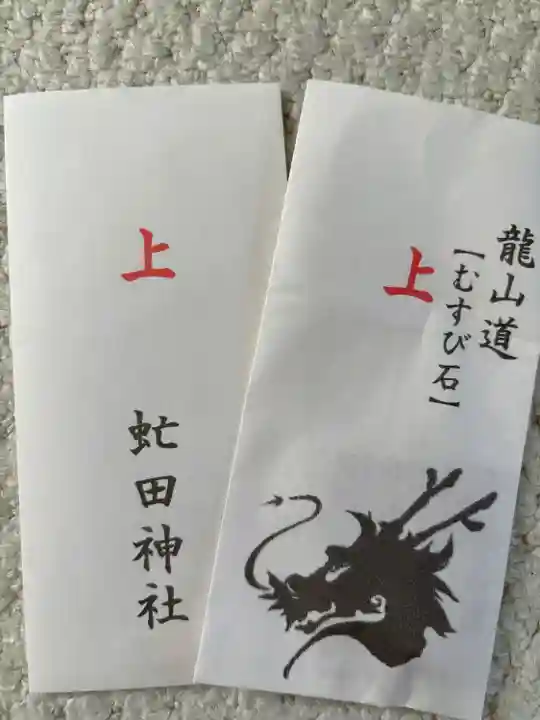 上
虻田神社
龍山道
【むすび石】
上